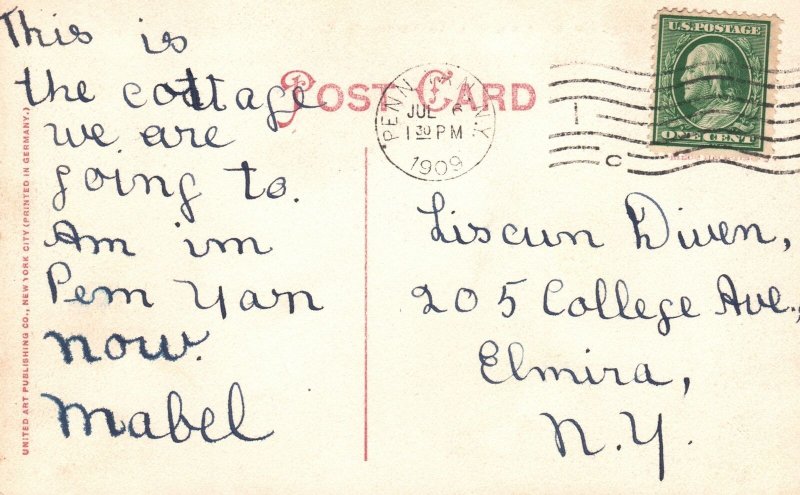 This is
the cottage
we are
going to.
Am im
Pem Yarn
now.
Mabel
POST CARD
PENN YAN NY
JUL 6
1 30 PM
1909
U.S. POSTAGE
ONE CENT
Liscum Diven,
205 College Ave.,
Elmira,
N.Y.
UNITED ART PUBLISHING CO., NEW YORK CITY (PRINTED IN GERMANY.)